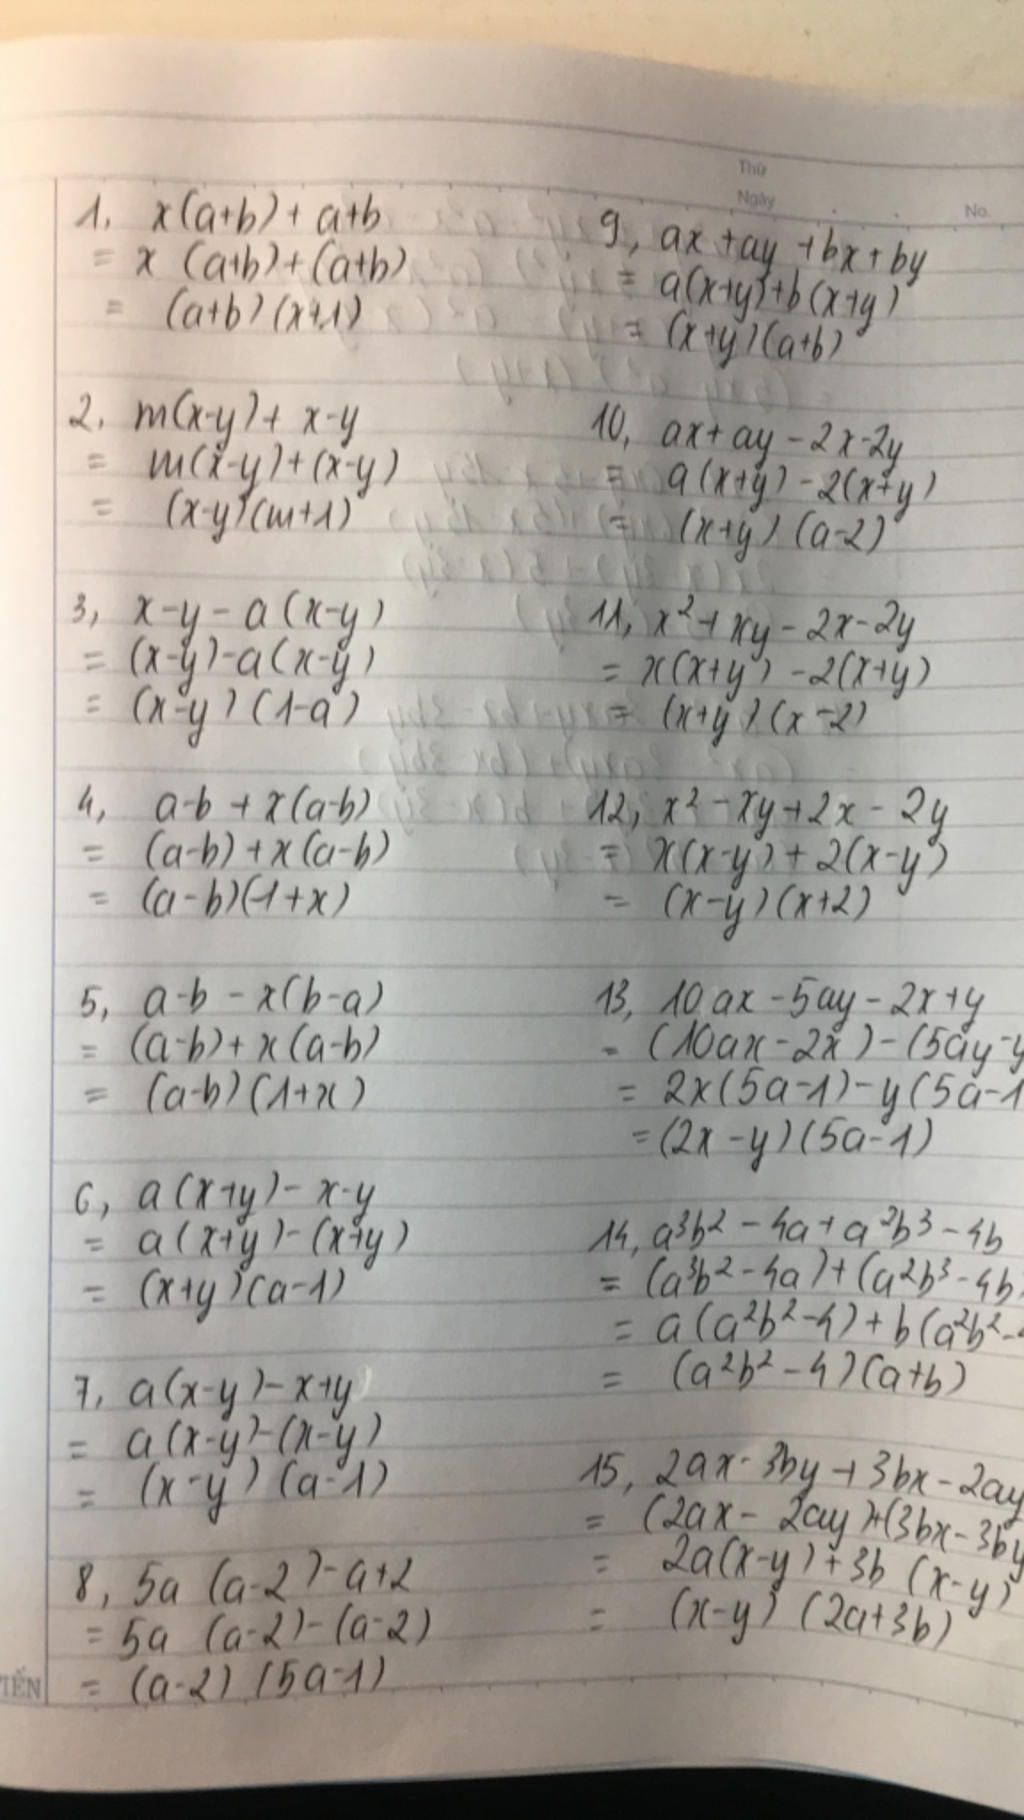 Thứ
Ngày
No.
1, x(a+b) + a+b
= x (a+b)+(a+b)
= (a+b)(x+1)
2, m(x-y)+ x-y
= m(x-y)+(x-y)
= (x-y)(m+1)
3, x-y-a(x-y)
= (x-y)-a(x-y)
= (x-y)(1-a)
4, a-b + x(a-b)
= (a-b)+x(a-b)
= (a-b)(1+x)
5, a-b - x(b-a)
= (a-b)+x(a-b)
= (a-b)(1+x)
6, a(x+y)-x-y
= a(x+y)-(x+y)
= (x+y)(a-1)
7, a(x-y)-x+y
= a(x-y)-(x-y)
= (x-y)(a-1)
8, 5a (a-2)-a+2
= 5a (a-2)-(a-2)
= (a-2)(5a-1)
9, ax+ay+bx+by
= a(x+y)+b(x+y)
= (x+y)(a+b)
10, ax+ay-2x-2y
= a(x+y)-2(x+y)
= (x+y)(a-2)
11, x²+xy-2x-2y
= x(x+y)-2(x+y)
= (x+y)(x-2)
12, x²-xy+2x-2y
= x(x-y)+2(x-y)
= (x-y)(x+2)
13, 10ax-5ay-2x+y
= (10ax-2x)-(5ay-y
= 2x(5a-1)-y(5a-1
=(2x-y)(5a-1)
14, a³b²-4a+a²b³-4b
= (a³b²-4a)+(a²b³-4b
= a(a²b²-4)+b(a²b²-
= (a²b²-4)(a+b)
15, 2ax-3by+3bx-2ay
= (2ax-2ay)+(3bx-3by
= 2a(x-y)+3b(x-y)
= (x-y)(2a+3b)
TIẾN